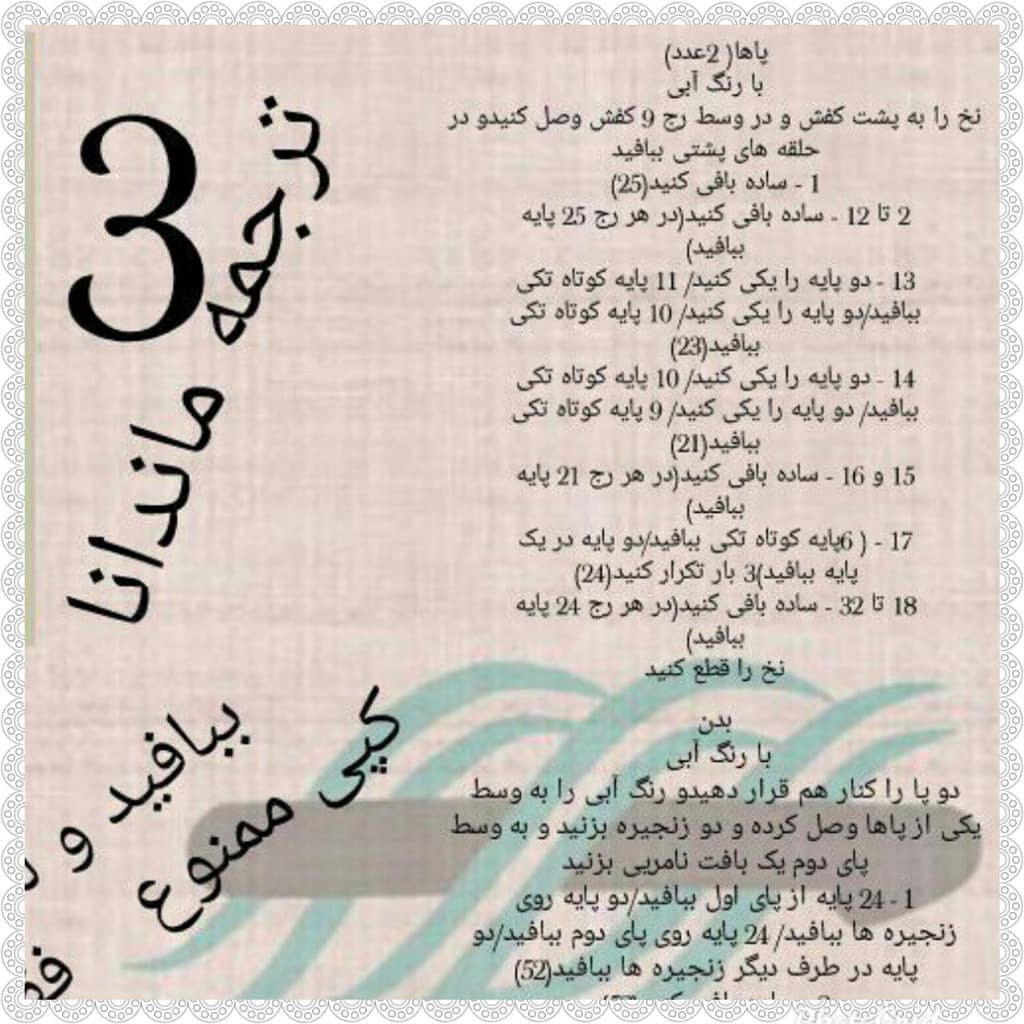 پاها( 2عدد)
با رنگ آبی
نخ را به پشت کفش و در وسط رج 9 کفش وصل کنیدو در
حلقه های پشتی ببافید
1 - ساده بافی کنید(25)
2 تا 12 - ساده بافی کنید(در هر رج 25 پایه
ببافید)
13 - دو پایه را یکی کنید/ 11 پایه کوتاه تکی
ببافید/دو پایه را یکی کنید/ 10 پایه کوتاه تکی
ببافید(23)
14 - دو پایه را یکی کنید/ 10 پایه کوتاه تکی
ببافید/ دو پایه را یکی کنید/ 9 پایه کوتاه تکی
ببافید(21)
15 و 16 - ساده بافی کنید(در هر رج 21 پایه
ببافید)
17 - ( 6پایه کوتاه تکی ببافید/دو پایه در یک
پایه ببافید)3 بار تکرار کنید(24)
18 تا 32 - ساده بافی کنید(در هر رج 24 پایه
ببافید)
نخ را قطع کنید
بدن
با رنگ آبی
دو پا را کنار هم قرار دهیدو رنگ آبی را به وسط
یکی از پاها وصل کرده و دو زنجیره بزنید و به وسط
پای دوم یک بافت نامریی بزنید
1 - 24 پایه از پای اول ببافید/دو پایه روی
زنجیره ها ببافید/ 24 پایه روی پای دوم ببافید/دو
پایه در طرف دیگر زنجیره ها ببافید(52)
3
ترجمه ماندانا
کپی ممنوع
ببافید و